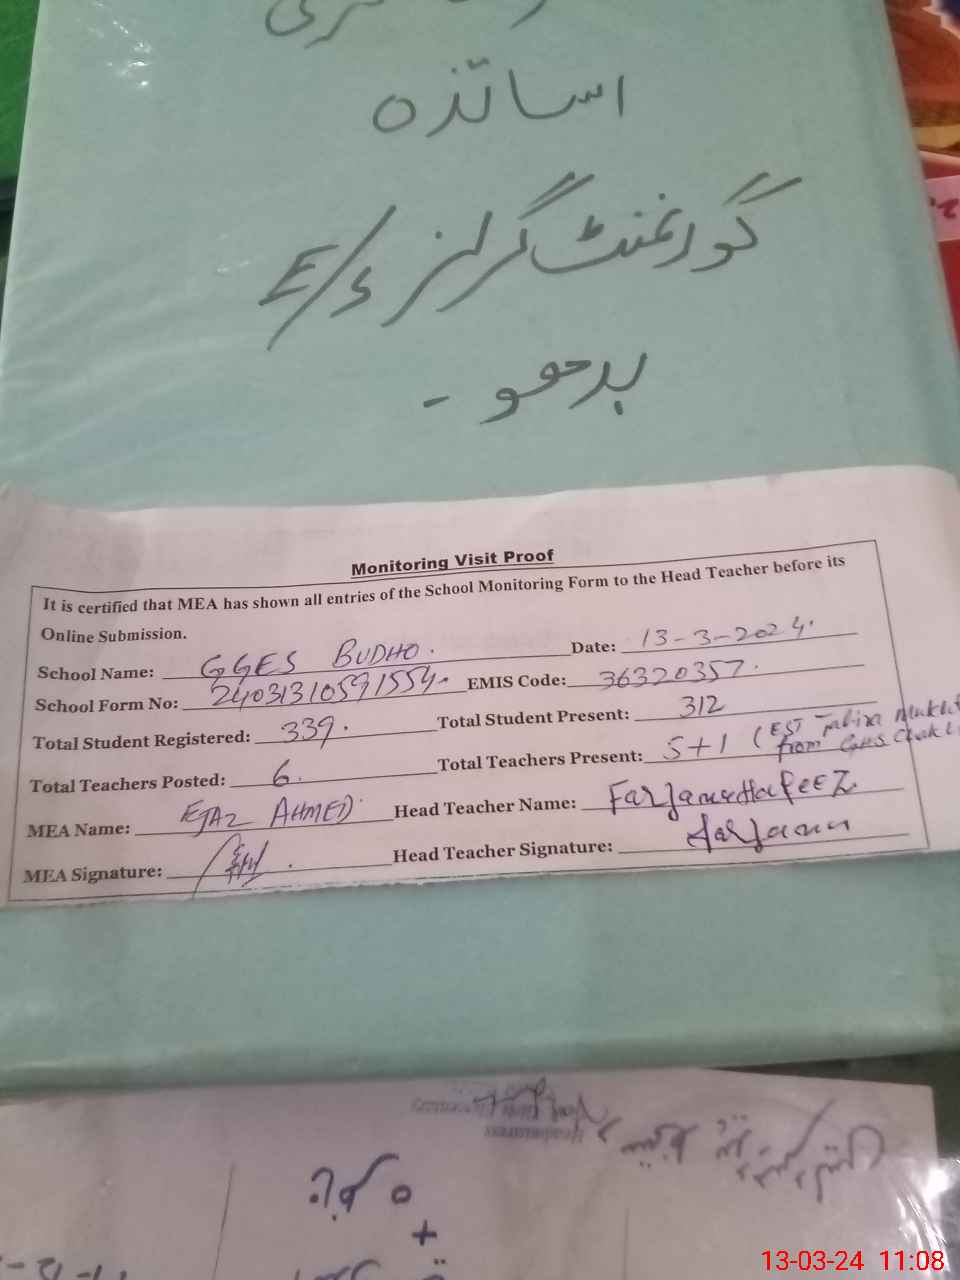 اساتذہ
گورنمنٹ گرلز E/S
بدھو -
Monitoring Visit Proof
It is certified that MEA has shown all entries of the School Monitoring Form to the Head Teacher before its
Online Submission.
School Name: GGES BUDHO. Date: 13-3-2024.
School Form No: 24031310591554. EMIS Code: 36320357.
Total Student Registered: 339. Total Student Present: 312
Total Teachers Posted: 6. Total Teachers Present: 5+1 (EST
from GHS Chak
MEA Name: EJAZ AHMED. Head Teacher Name: Farzana Hafeez
MEA Signature: Head Teacher Signature: Farzana
+
13-03-24 11:08